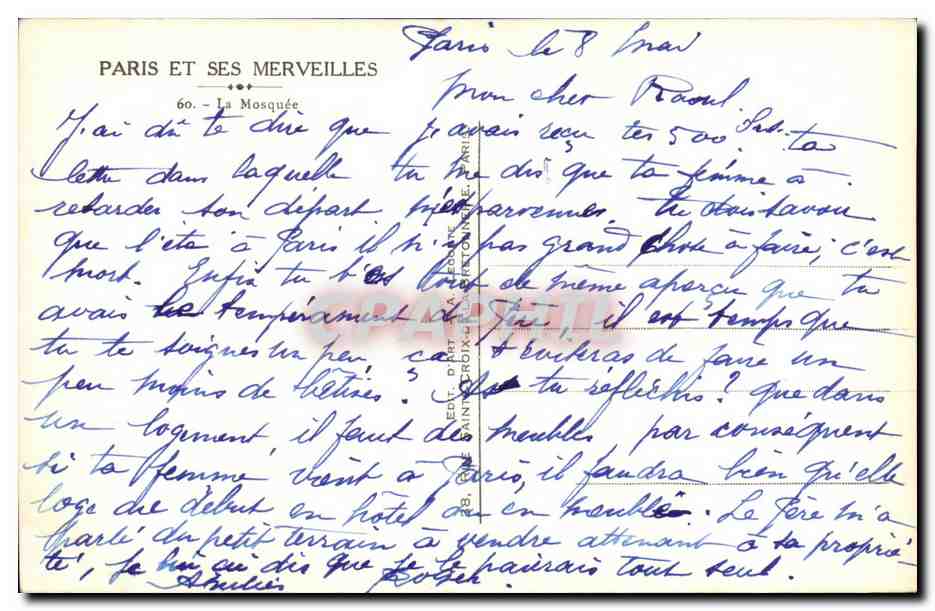 Paris le 8 Mai
PARIS ET SES MERVEILLES
60. - La Mosquée
Mon cher Raoul.
J'ai dû te dire que j'avais reçu tes 500 frs. ta
lettre dans laquelle tu me dis que ta femme a
retarder son départ m'est parvenues. Tu dois savoir
que l'été à Paris il n'y a pas grand chose à faire, c'est
mort. Enfin tu t'es tout de même aperçu que tu
avais le tempérament du Père, il est temps que
tu te soignes un peu ça t'éviteras de faire un
peu moins de bêtises. As tu réfléchis? que dans
un logement il faut des meubles, par conséquent
si ta femme vient à Paris, il faudra bien qu'elle
loge au début en hôtel ou en meublé. Le Père m'a
parlé du petit terrain à vendre attenant à sa proprié-
té, je lui ai dis que je le paierais tout seul.
Amitiés Roger.
EDIT. D'ART A. LECONTE
38, RUE SAINTE-CROIX-DE-LA-BRETONNERIE, PARIS
CPAPHIL